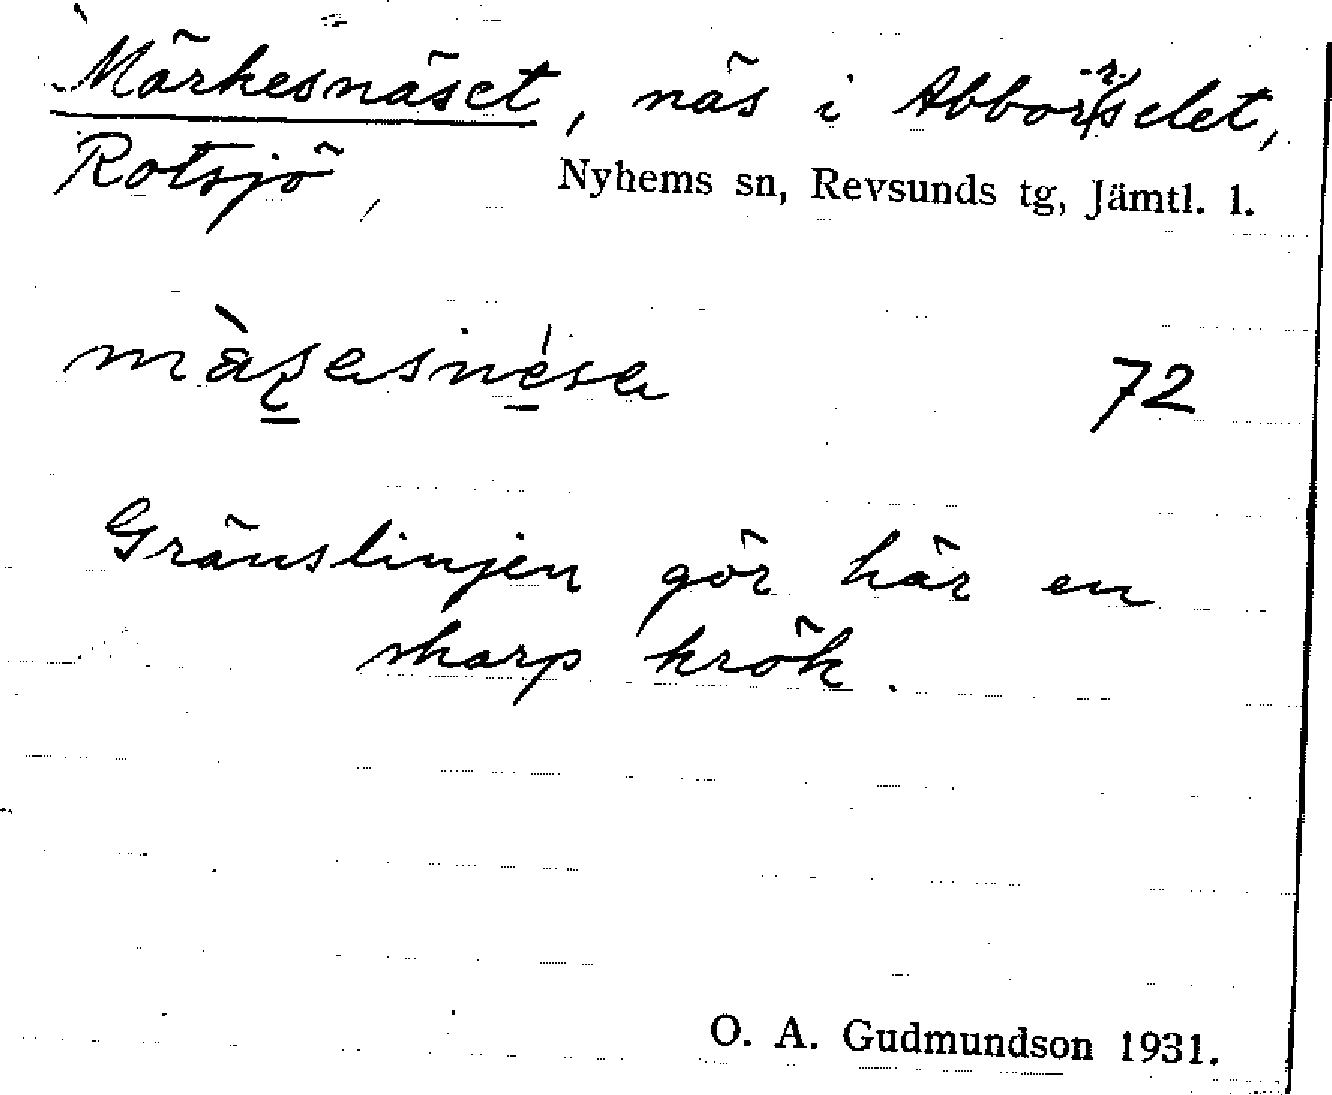 Märkesnäset, näs i Abborrselet,
Rotsjö, Nyhems sn, Revsunds tg, Jämtl. l.
72
Gränslinjen gör här en
skarp krök.
O. A. Gudmundson 1931.